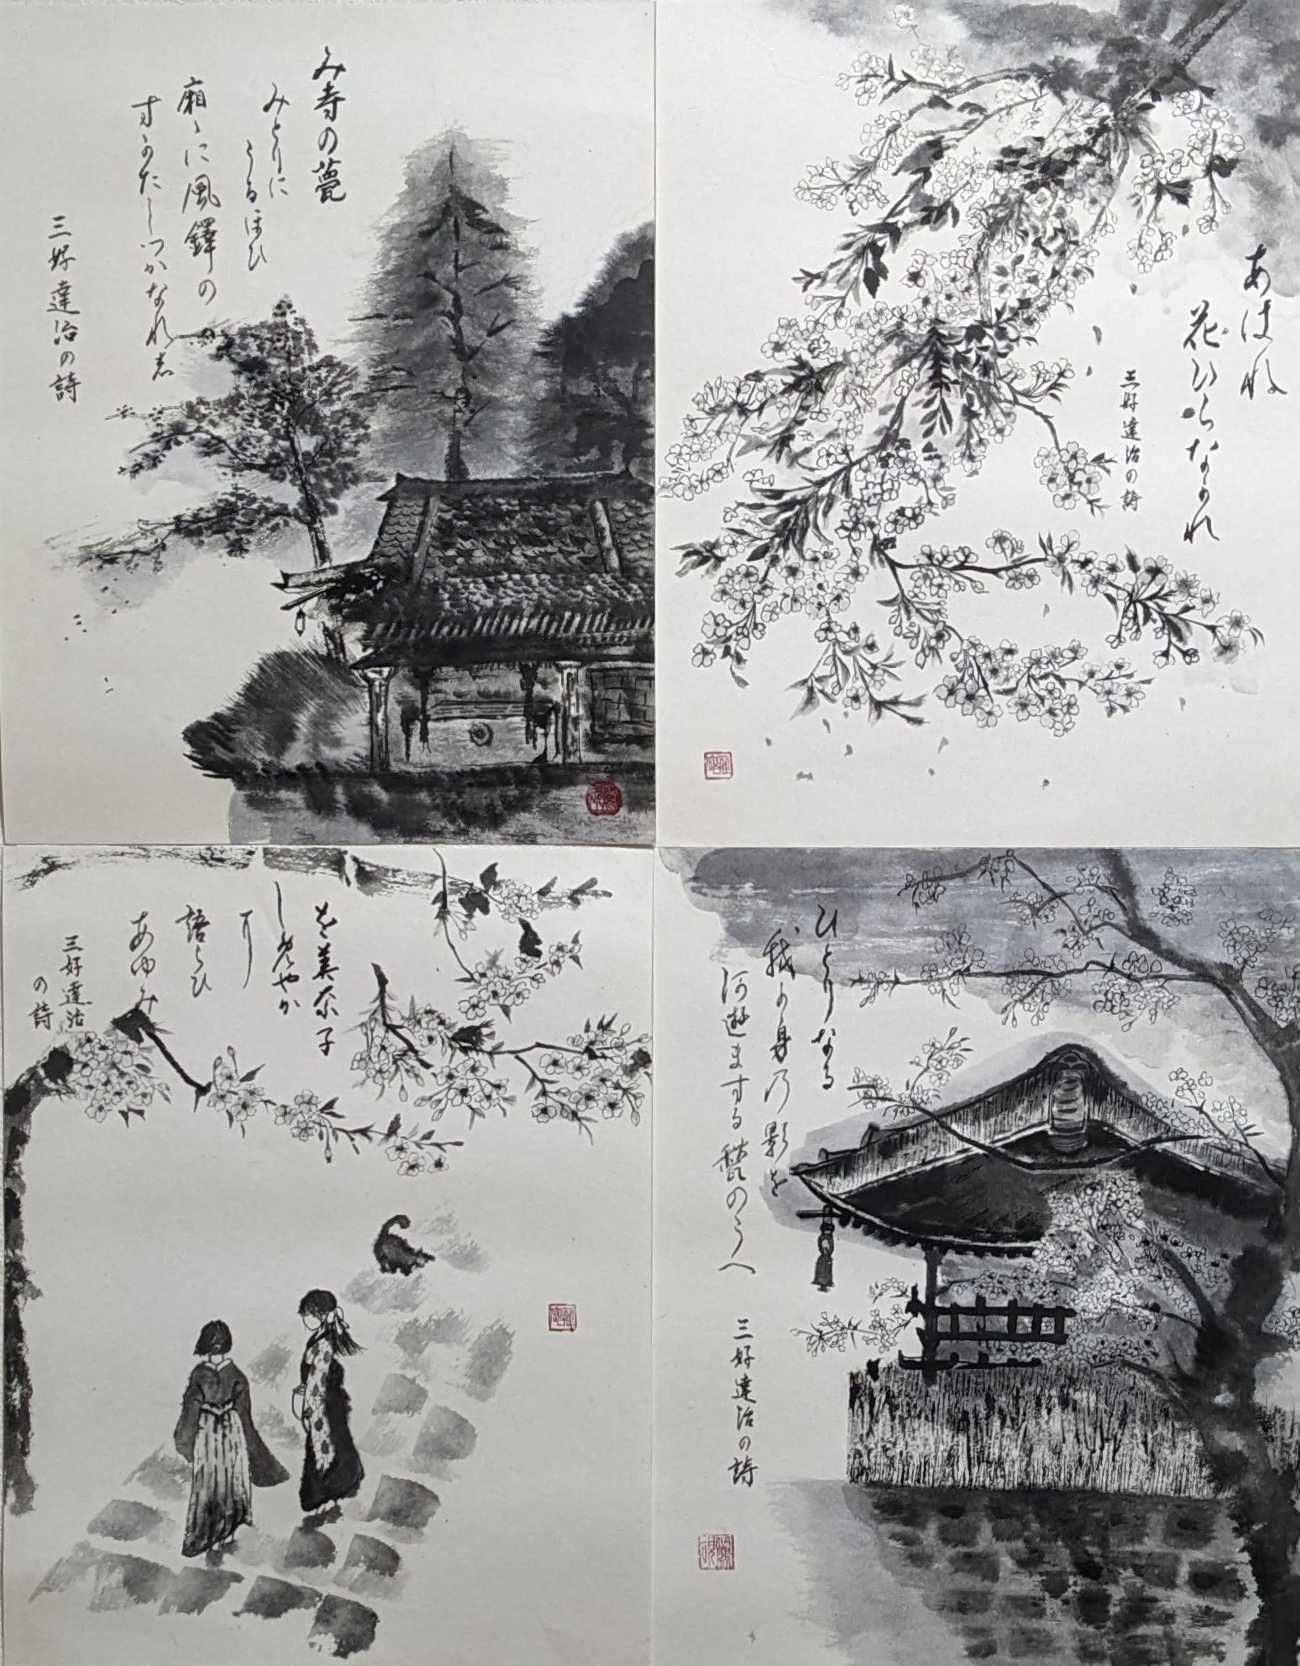 み寺の甍
みとりに
うるほひ
廂々に風鐸の
す可たしつかなれ者
三好達治の詩
あはれ
花ひらなかれ
三好達治の詩
を美奈子
しめやか
に
語らひ
あゆみ
三好達治
の詩
ひとりなる
我可身乃影を
阿遊まする甃のうへ
三好達治の詩